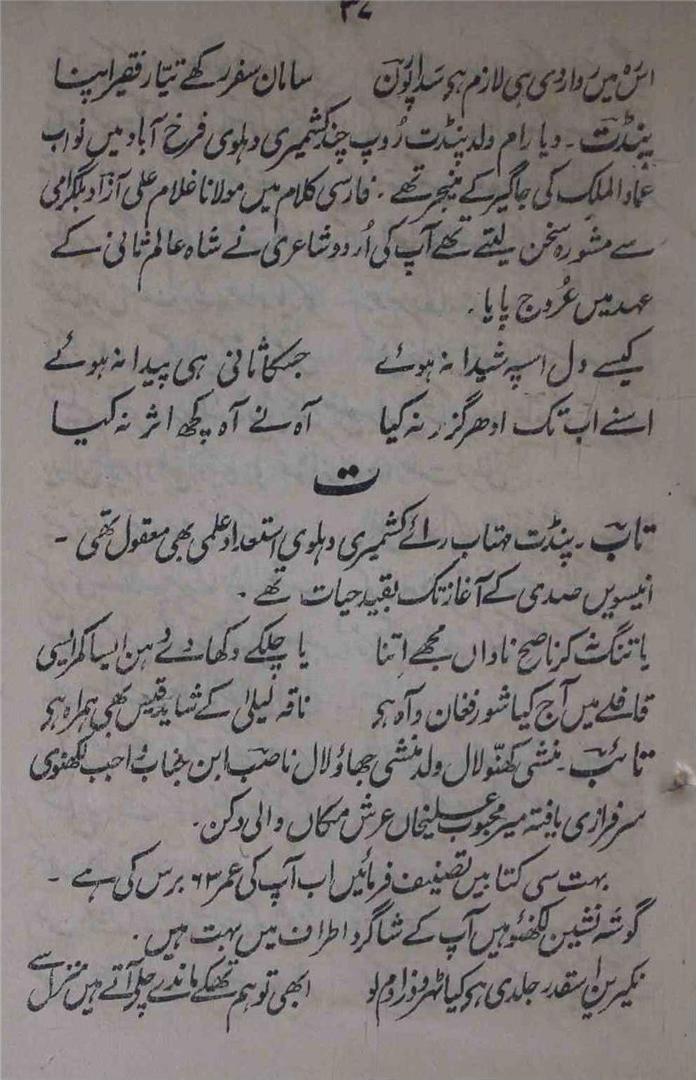 ۳۷
اس میں رواروی ہی لازم ہو سدا پون سامان سفر رکھے تیّار فقیر اپنا
پنڈت ۔ دیا رام ولد پنڈت رُوپ چند کشمیری دہلوی فرخ آباد میں نواب
عماد الملک کی جاگیر کے منیجر تھے ۔ فارسی کلام میں مولانا غلام علی آزاد بلگرامی
سے مشورہ سخن لیتے تھے آپ کی اُردو شاعری نے شاہ عالم ثانی کے
عہد میں عُروج پایا ۔
کیسے دل اسپہ شیدا نہ ہوئے جسکا ثانی ہی پیدا نہ ہوئے
اسنے اب تک ادھر گزر نہ کیا آہ نے آہ کچھ اثر نہ کیا
ت
تاب ۔ پنڈت مہتاب رائے کشمیری دہلوی استعداد علمی بھی معقول تھی ۔
انیسویں صدی کے آغاز تک بقید حیات تھے ۔
یا تنگ نہ کر ناصح ناداں مجھے اتنا یا چلکے دکھا دے دہن ایسا کمر ایسی
قافلے میں آج کیا شور فغان و آہ ہو ناقہ لیلیٰ کے شاید قیس بھی ہمراہ ہو
تائب ۔ منشی کھنّو لال ولد منشی جھاؤ لال ناصب ابن جناب واجب لکھنوی
سرفرازی یافتہ میر محبوب علیخاں عرش مکاں والی دکن ۔
بہت سی کتابیں تصنیف فرمائیں اب آپ کی عمر ۶۳ برس کی ہے ۔
گوشہ نشین لکھنؤ ہیں آپ کے شاگرد اطراف میں بہت ہیں ۔
نکیرین اسقدر جلدی ہو کیا ٹھہرو ذرا دم لو ابھی تو ہم تھکے ماندے چلے آتے ہیں منزل سے